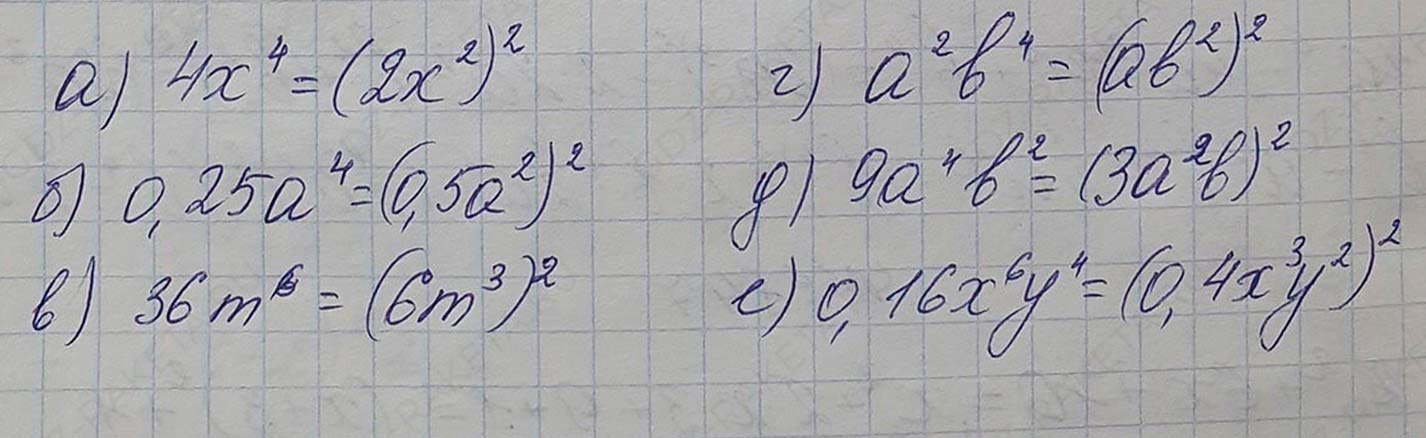 а) 4x⁴ = (2x²)²
б) 0,25a⁴ = (0,5a²)²
в) 36m⁶ = (6m³)²
г) a²b⁴ = (ab²)²
д) 9a⁴b² = (3a²b)²
е) 0,16x⁶y⁴ = (0,4x³y²)²